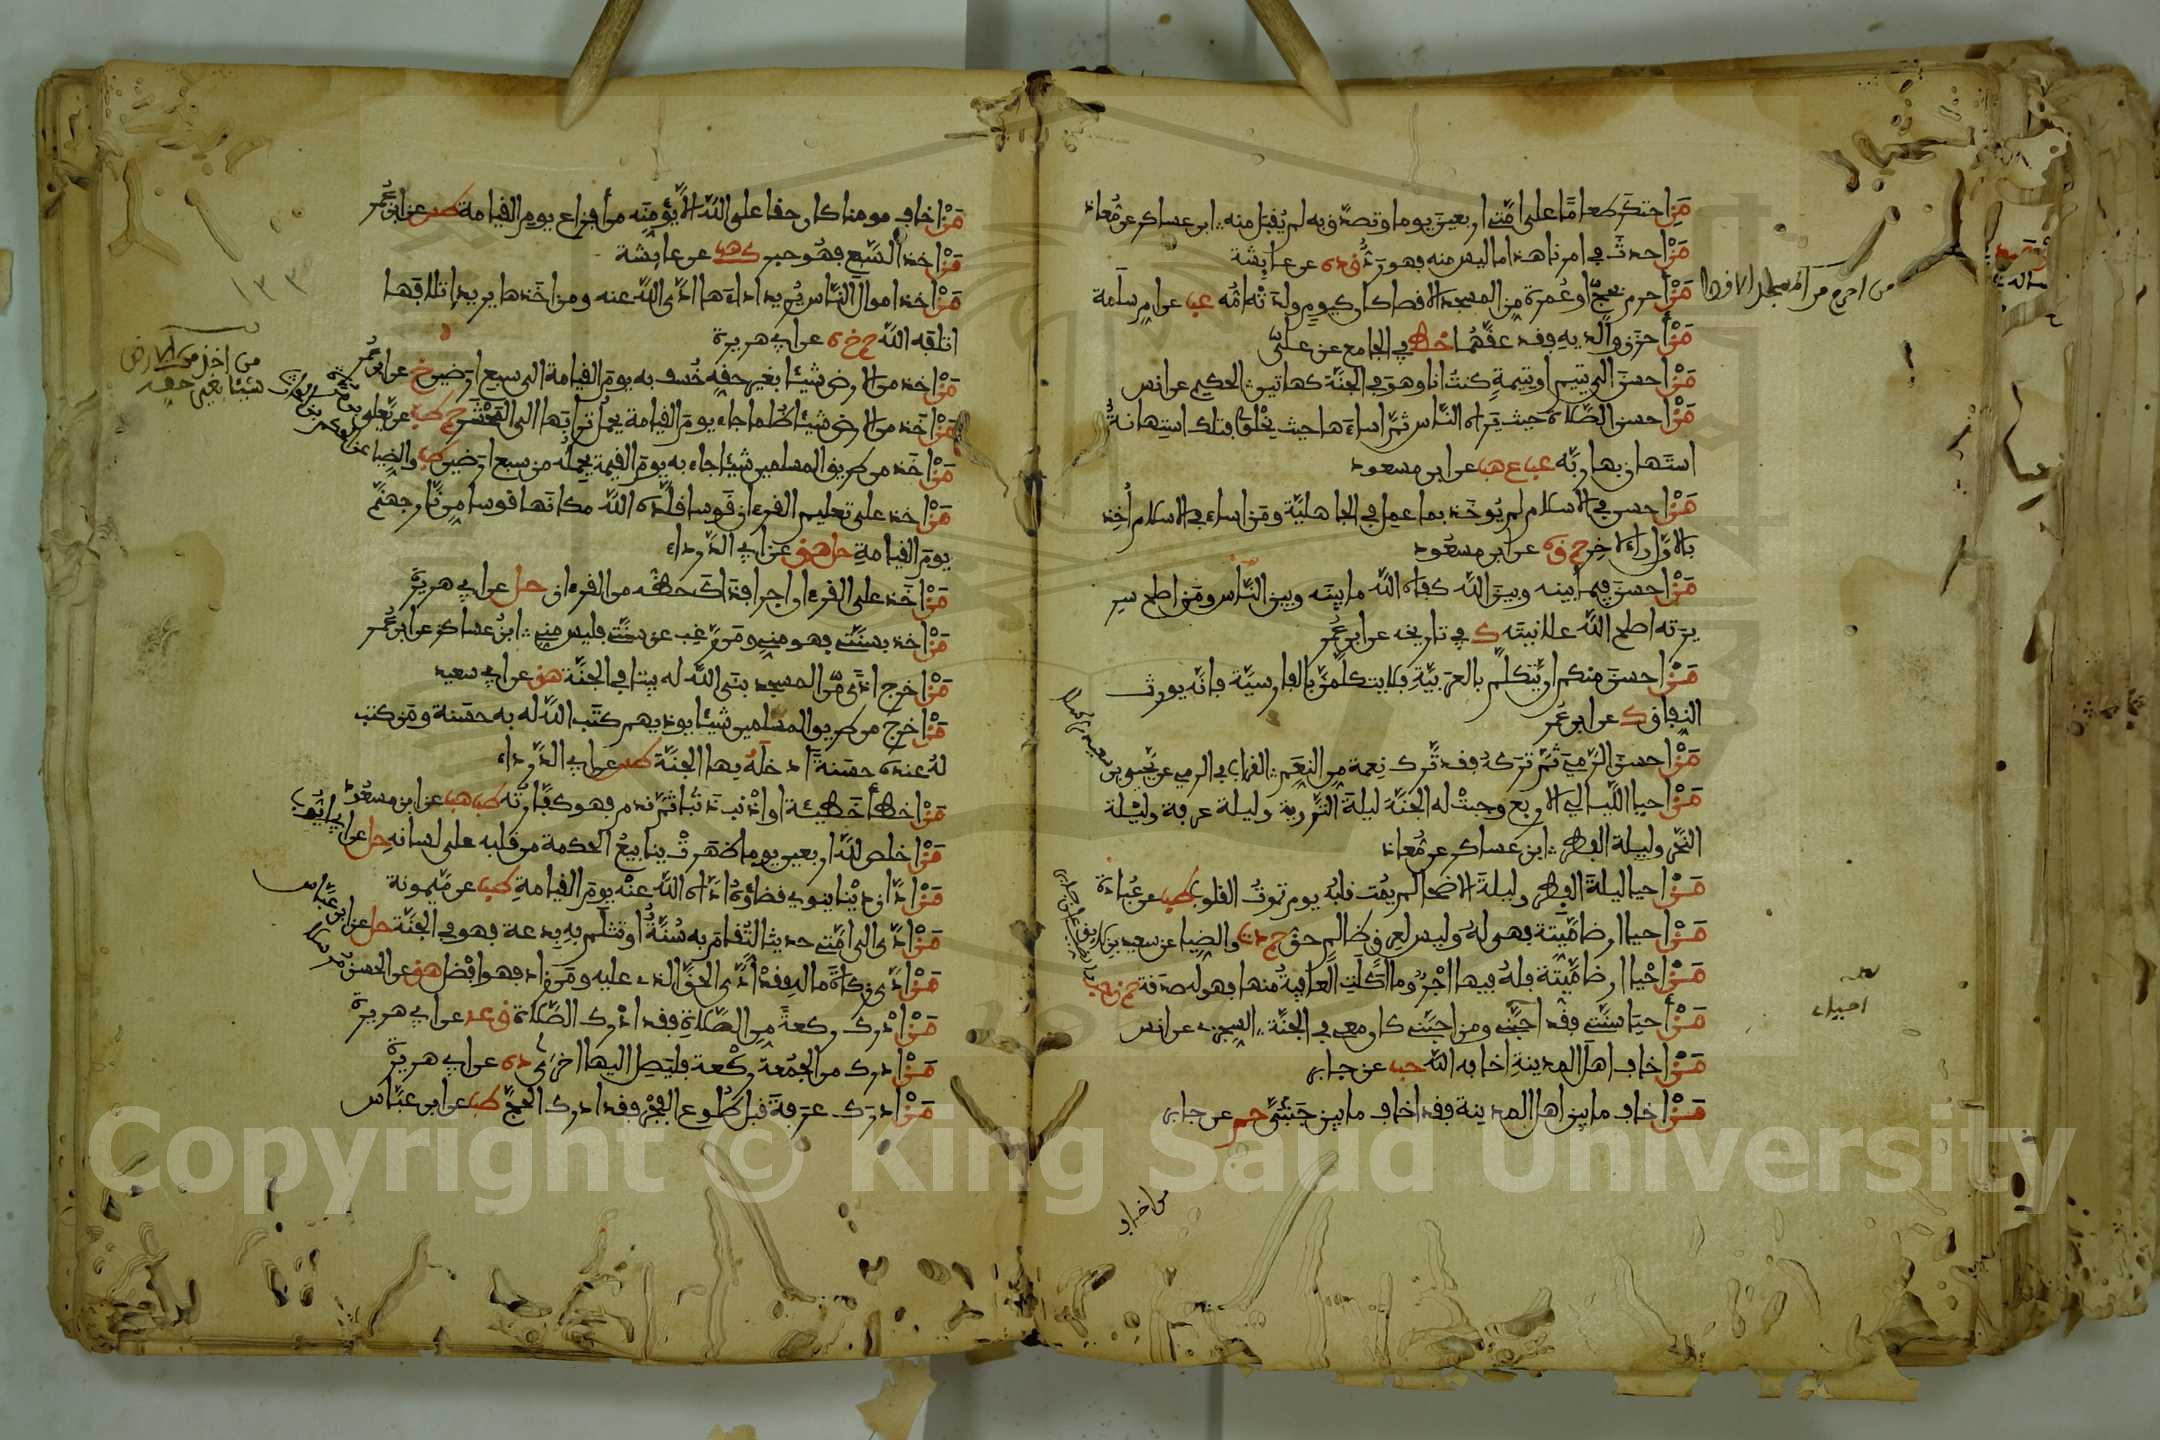 مَنِ احتكر طعاما على امّتي اربعين يوما وتصدّق به لم يُقبل منه ابن عساكر عن مُعاذ
مَنْ احدث في امرنا هذا ما ليس منه فهو ردٌّ ق د ه عن عايشة
مَنْ احرم بحجّ او عُمرة من المسجد الاقصا كان كيومِ ولدَتْه امّه عب عن ام سلَمة
مَنْ أحزن والديه فقد عقّهُما خط في الجامع عن عليّ
مَنْ احسن الى يتيم او يتيمةٍ كنتُ انا وهو في الجنّة كهاتين الحكيم عن انس
مَنْ احسن الصّلاة حيث يَراه النّاس ثمّ اساءَها حيث يخْلوا فتلك استهانةٌ
استَهان بها ربّه عب ع هب عن ابن مسعود
مَنْ احسن في الاسلام لم يُوخَذ بما عمل في الجاهليّة ومَن اساء في الاسلام أُخِذ
بالاوّل والاخِرِ حم ق ه عن ابن مسعُود
مَنْ احسن فيما بينه وبين اللّه كفاه اللّه ما بينَه وبين النّاس ومَن اصلح سر
يرَته اصلح اللّه علانيتَه ك في تاريخه عن ابن عُمر
مَنْ احسن منكم ان يتكلّم بالعرَبيّةِ فلا يتكلّمنّ بالفارسيّة فانّه يورث
النِفاق ك عن ابن عُمر
مَنْ احسن الرّميَ ثمّ ترَكهُ فقد ترَك نِعمة من النِعَم القراب في الرمي عن يحيى بن
سعيد مُرسلا
مَنْ احيا اللّيالي الاربع وجبتْ له الجنّة ليلةَ التّروية وليلة عرفة وليْلة
النّحر وليلة الفطر ابن عساكر عن مُعاذ
مَنْ احيا ليلةَ الفِطر وليلةَ الاضحا لم يمُت قلبُه يوم تموتُ القلوب طب عن عُبادة
مَنْ احيا ارضا ميّتة فهي لهُ وليس لعِرق ظالمٍ حق حم د ت والضِيا عن سعيد بن زيد
مَنْ احْيا ارضا ميّتة فلهُ فيها اجْرٌ وما اكَلَتِ العافيةُ منها فهو له صدَقة حم ن حب
مَنْ أحيَا سنّتي فقد أحبّني ومن احبّني كان معي في الجنّة السِجزي عن انس
مَنْ اخاف اهل المدينة اخافه اللّه حب عن جابر
مَنْ اخاف ما بين اهل المدينة فقد اخاف ما بين جَنبيَّ حم عن جابر
من اخاف
من احرم من المسجد الاقصا
احياء
مَنْ اخاف مومنا كان حقا على اللّه الّا يُؤمنَه من أفزاع يوم القيامة طس عن ابن عُمر
مَنْ اخذ السّبع فهُو حبر ك هب عن عايشة
مَنْ اخذ اموال النّاس يُريد اداءَها ادّى اللّه عنه ومن اخَذها يريد اتلافَها
اتلفه اللّه حم خ ه عن ابي هريرة
مَنْ اخذ من الارض شيئا بغير حقِه خُسف به يومَ القيامة الى سبع ارَضين خ عن ابن عُمر
مَنْ اخَذ من الارض شيئا ظُلما جاء يومَ القيامة يحمل ترابَها الى المَحْشَر حم طب عن يَعلى
بن مُرّة
مَنْ اخَذ من طريق المسلمين شيئا جاء به يومَ القيمة يحمِلُه من سبع ارَضين طب والضيا عن
الحكم بن الحارث
مَنْ اخذ على تعليم القرءان قَوسا قلّدَه اللّه مكانَها قوسا من نار جهنّم
يومَ القيامةِ حل هق عن ابي الدّرداء
مَنْ أخَذ على القرءان اجرا فذاك حظّه من القرءان حل عن ابي هريرة
مَنْ اخذ بسنّتي فهو منيِ ومَن رغِب عن سنّتي فليس منيِ ابنُ عساكر عن ابن عُمر
مَنْ اخرج اذًى من المسجد بنَى اللّه له بيتا في الجنّة ه عن ابي سعيد
مَنْ اخرج من طريق المسلمين شيئا يوذيهم كتَب اللّه له به حسَنة ومَن كتب
لهُ عندَه حسَنة ادخلَهُ بها الجنّة طس عن ابي الدّرداء
مَنْ اخطأ خَطيئة او اذْنب ذَنْبا ثمّ ندم فهو كفّارتُه طب هب عن ابن مسعُود
مَنْ اخلص للّه اربعين يوما ظهَرتْ ينابيعُ الحكمة من قلبه على لسانه حل عن ابي ايّوب
مَنْ ادّان دَيْنا ينوي قضاؤَه ادّاه اللّه عنْه يومَ القيامةِ طب عن مَيمونة
مَنْ ادّى الى امّتي حديثا لتُقامَ به سُنّةٌ او تثلَم بهِ بدعة فهو في الجنّة حل عن ابن عبّاس
مَنْ ادّى زكاةَ مالهِ فقدْ ادّى الحقّ الذي عليه ومَن زاد فهو افضل هق عن الحسن مُرسلا
مَنْ ادْرك ركعةً من الصّلاةِ فقد ادْرك الصّلاة ق عد عن ابي هريرة
مَنْ ادرك من الجُمُعة ركْعة فليَصِل اليها اخرَى ه ك عن ابي هريرة
مَنْ ادرَك عرَفةَ قبل طُلوع الفجْر فقد ادرك الحجّ طب عن ابن عبّاس
من اخذ من الارض
شيئا بغير حقه
١٣٣
Copyright © King Saud University